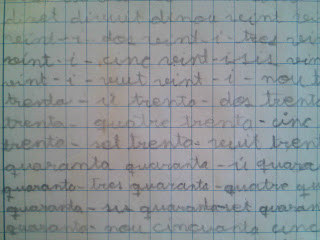 diset divuit dinou vint vint
vint-i-dos vint-i-tres vin
vint-i-cinc vint-i-sis vin
vint-i-vuit vint-i-nou t
trenta-ú trenta-dos trenta
trenta-quatre trenta-cinc
trenta-set trenta-vuit trent
quaranta quaranta-ú quara
quaranta-tres quaranta-quatre qu
quaranta-sis quaranta-set quaran
quaranta-nou cinquanta cinc